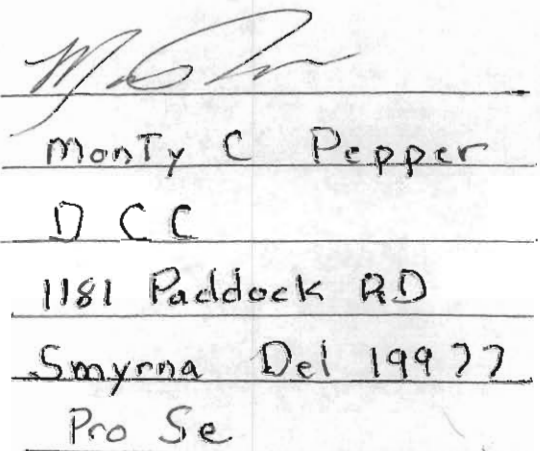 Monty C Pepper
D C C
1181 Paddock RD
Smyrna Del 19977
Pro Se